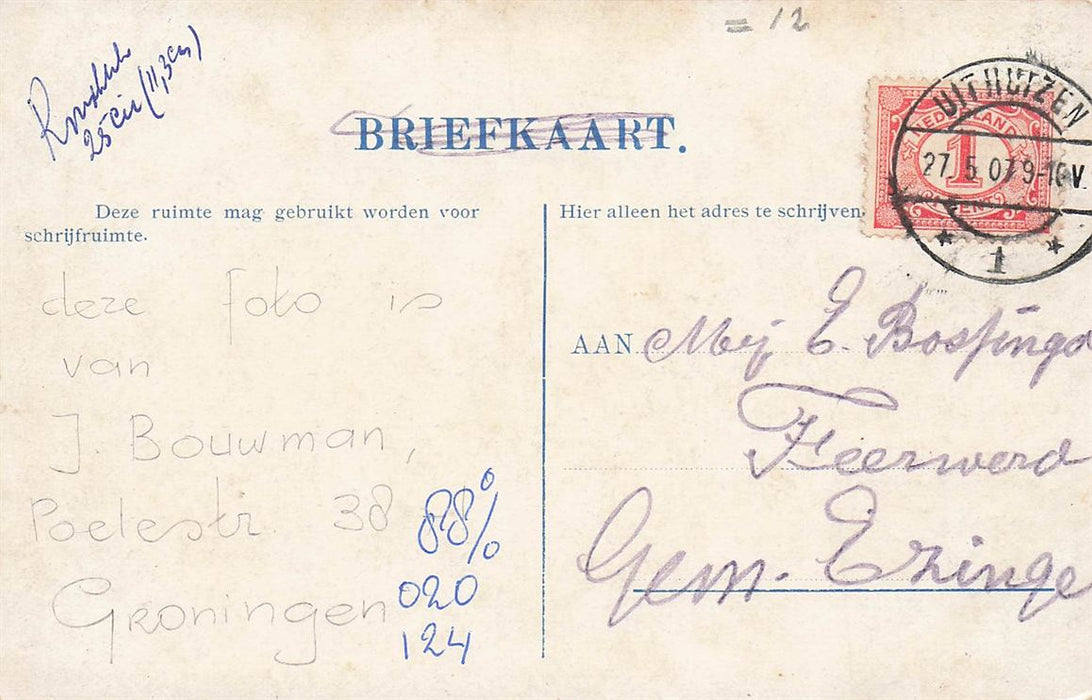 = 12
25 cii (11,3cm)
BRIEFKAART.
UITHUIZEN
27. 5. 07 9-10V
1
NEDERLAND
1
CENT
Deze ruimte mag gebruikt worden voor
schrijfruimte.
deze foto is
van
J. Bouwman,
Poelestr. 38
Groningen
88%
020
124
Hier alleen het adres te schrijven.
AAN Mej. E. Bossinga
Feerwerd
Gem. Ezinge